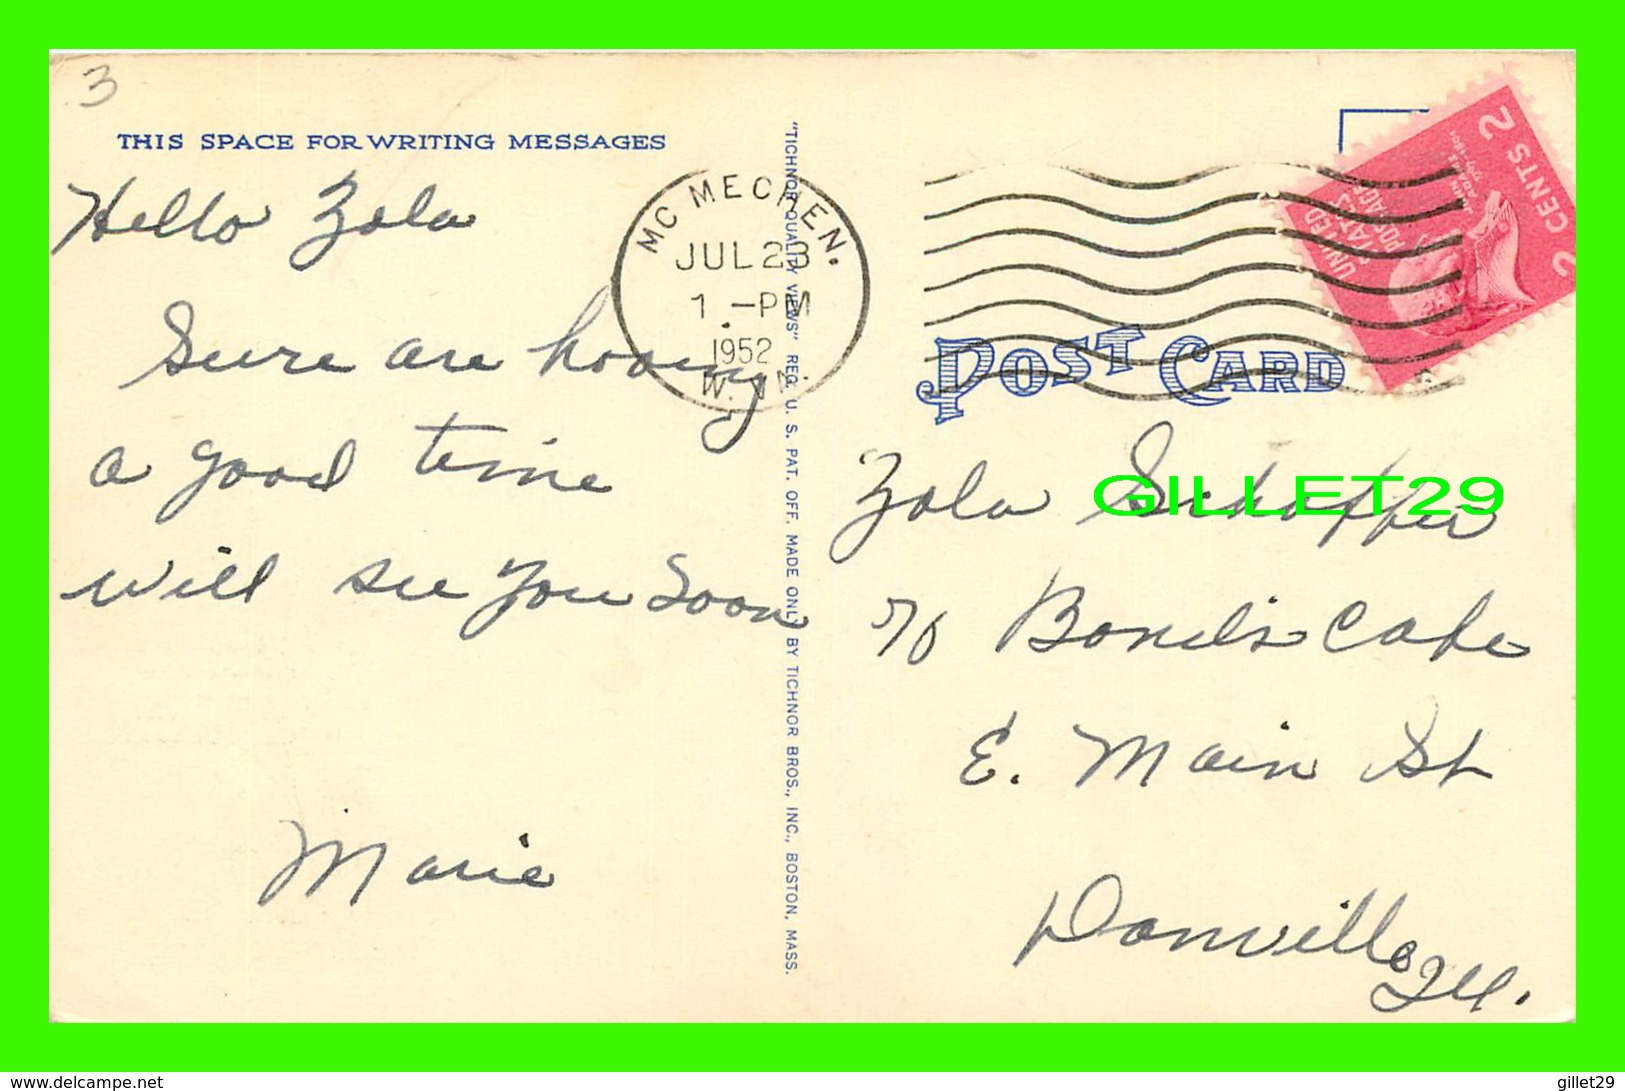 3
THIS SPACE FOR WRITING MESSAGES
Hello Zola
Sure are having
a good time
will see you soon
Marie
"TICHNOR QUALITY VIEWS" REG. U. S. PAT. OFF. MADE ONLY BY TICHNOR BROS., INC., BOSTON, MASS.
MC MECHEN.
JUL 23
1 -PM
1952
W. VA.
UNITED
STATES
POSTAGE
JOHN
ADAMS
2 CENTS 2
POST CARD
Zola Schaffer
GILLET29
% Bond's Cafe
E. Main St
Danville Ill.
www.delcampe.net
gillet29